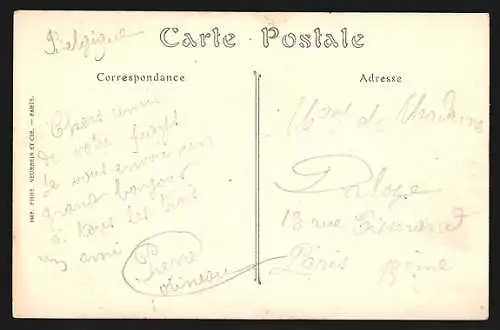 Belgique
Carte Postale
Correspondance
Adresse
IMP. PHOT. NEURDEIN ET CIE. — PARIS.
Chers amis
de votre
Je vous envoie un
grand bonjour
à tous les trois
un ami Pierre
de
Palope
13 rue
Paris 15ème